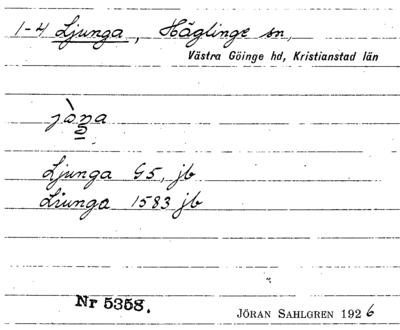 1-4 Ljunga, Häglinge sn,
Västra Göinge hd, Kristianstad län
Ljunga G5, jb
Liunga 1583 jb
Nr 5358.
JÖRAN SAHLGREN 1926